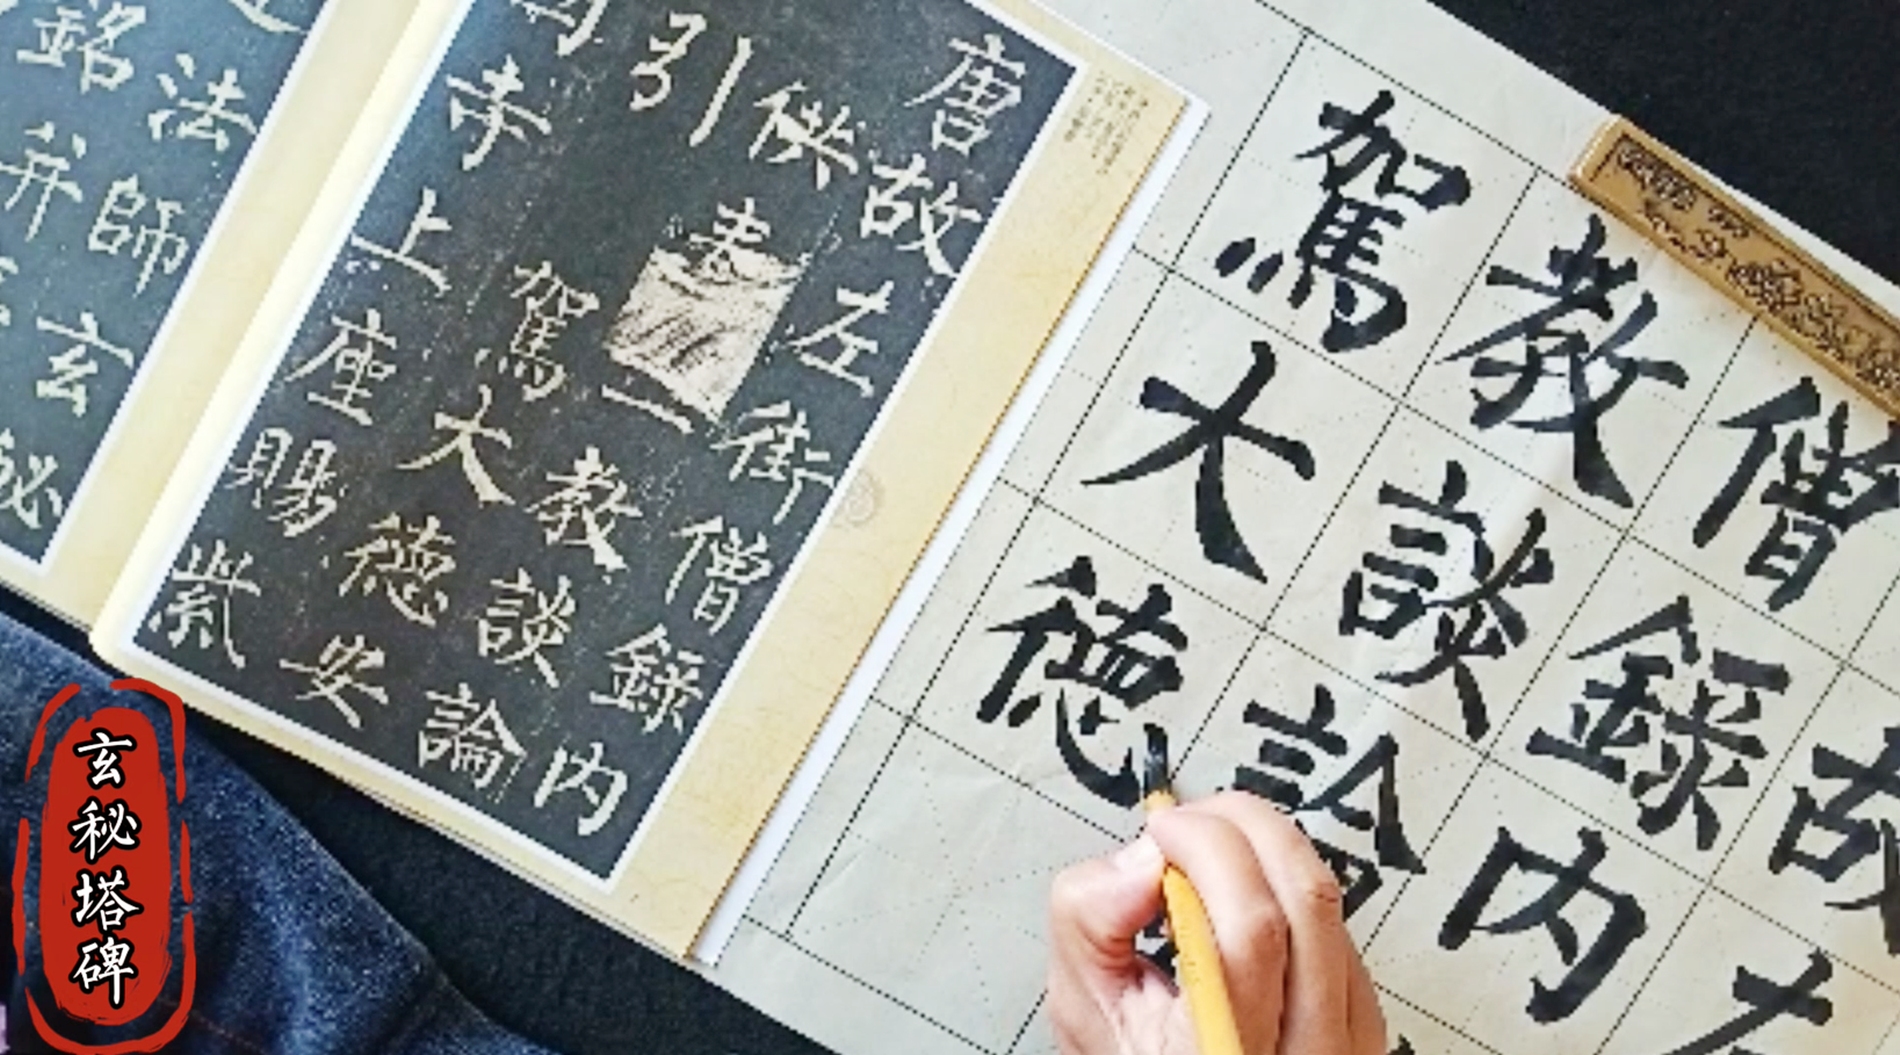 唐故左街僧錄內
供奉
教談論
引駕大德安
寺上座賜紫
法師玄秘
銘并
故左
僧錄內
教談論
駕大德
玄秘塔碑